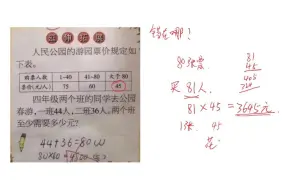 人民公园的游园票价规定如
下表。
购票人数 1-40 41-80 大于80
票价(元/人) 75 60 45
四年级两个班的同学去公园
春游，一班44人，二班36人，两个班
至少需要多少元？
44+36=80(人)
错在哪？
80张票
买81人
81
45
405
81×45=3645元
1张 45